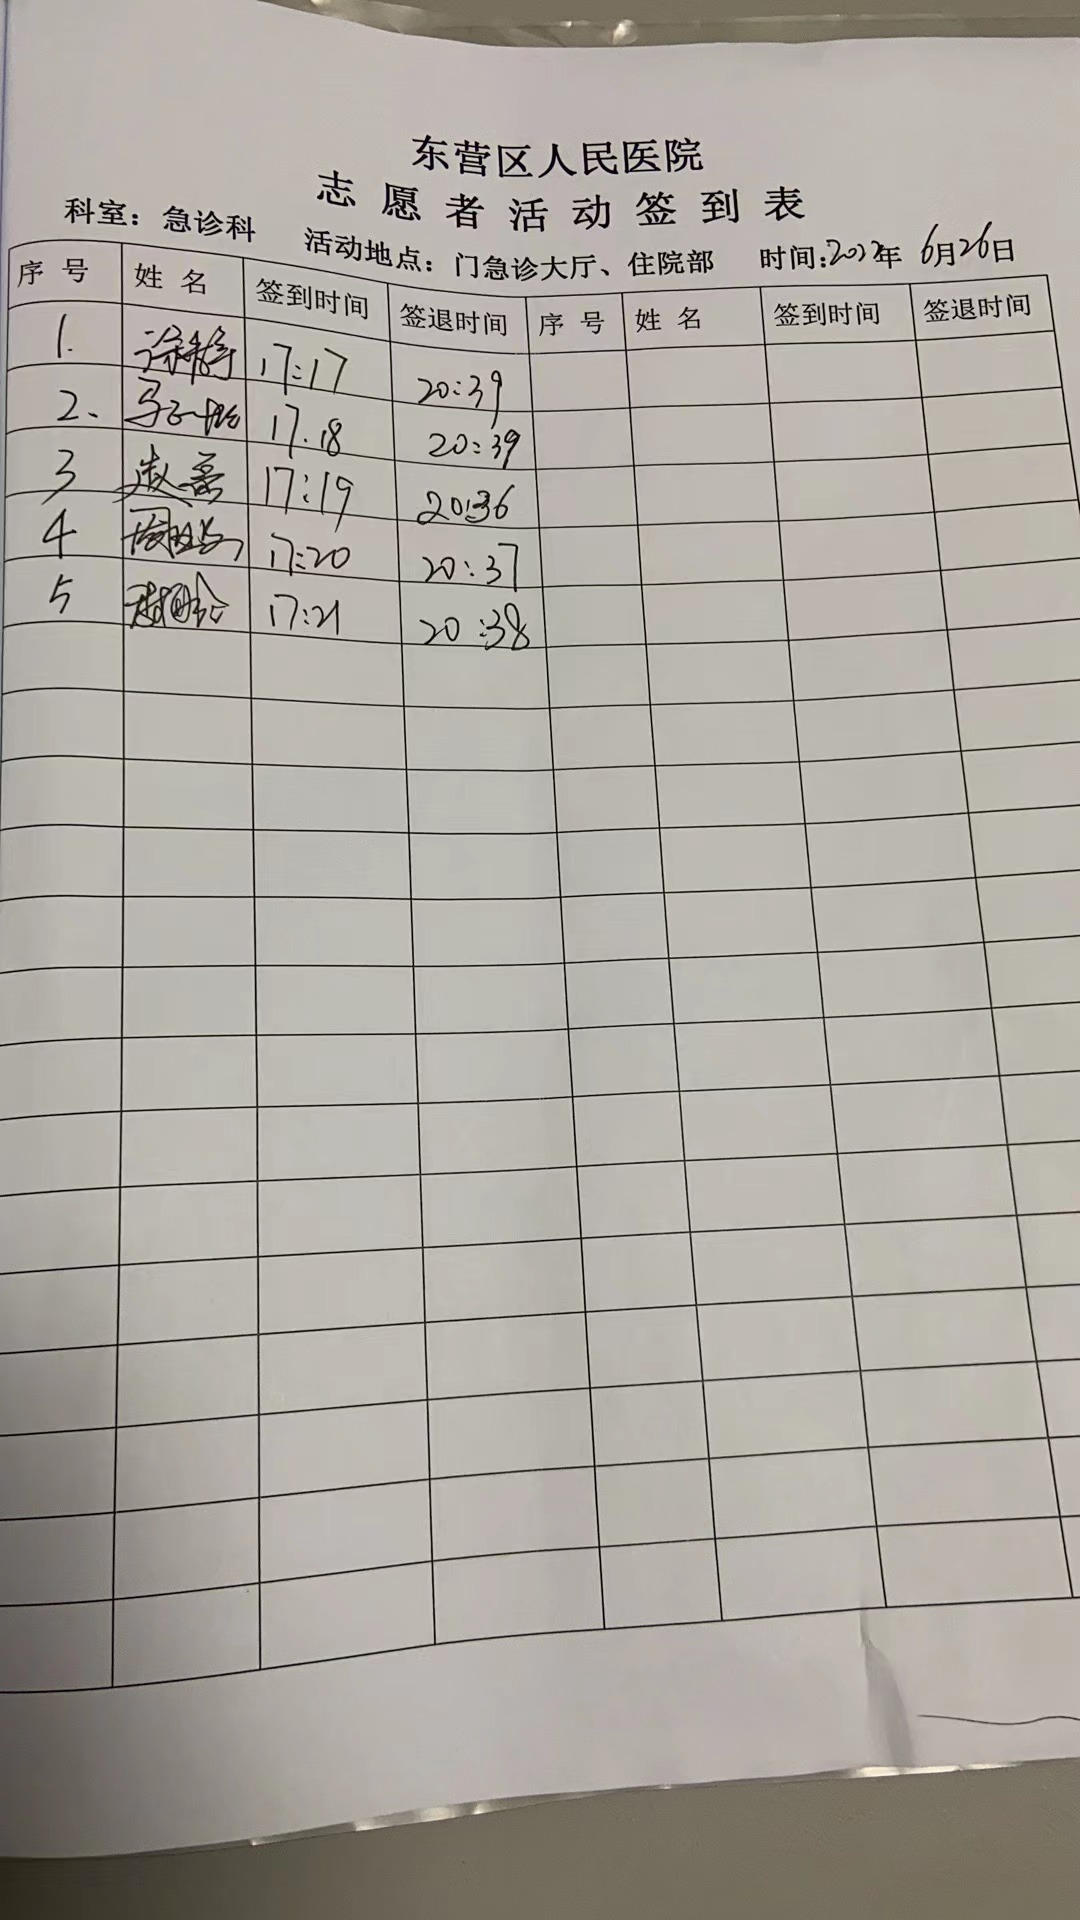 东营区人民医院
志愿者活动签到表
科室：急诊科 活动地点：门急诊大厅、住院部 时间:2022年 6月26日
序号 姓名 签到时间 签退时间 序号 姓名 签到时间 签退时间
1. 17:17 20:39
2. 17.18 20:39
3 17:19 20:36
4 17:20 20:37
5 17:21 20:38